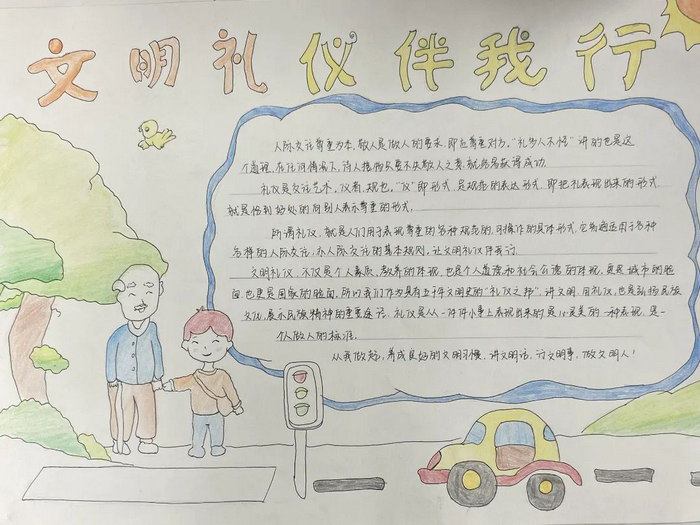 文明礼仪伴我行
人际交往尊重为本，敬人是做人的要求，即包尊重对方，"礼多人不怪"讲的也是这
个道理，在任何情况下，待人接物只要不失敬人之意，就容易获得成功。
礼仪是交往艺术，仪者，规也，"仪"即形式，是规范的表达形式，即把礼表现出来的形式，
就是恰到好处的向别人表示尊重的形式。
所谓礼仪，就是人们用于表现尊重的各种规范的，可操作的具体形式，它普遍适用于各种
各样的人际交往，亦人际交往的基本规则，让文明礼仪伴我行。
文明礼仪，不仅是个人素质、教养的体现，也是个人道德和社会公德的体现，更是城市的脸
面，也更是国家的脸面，所以我们作为具有五千年文明史的"礼仪之邦"，讲文明，用礼仪，也是弘扬民族
文化，展示民族精神的重要途径，礼仪是从一件件小事上表现出来的是心灵美的一种表现，是一
个人做人的标准。
从我做起，养成良好的文明习惯，讲文明话，讨文明事，做文明人！